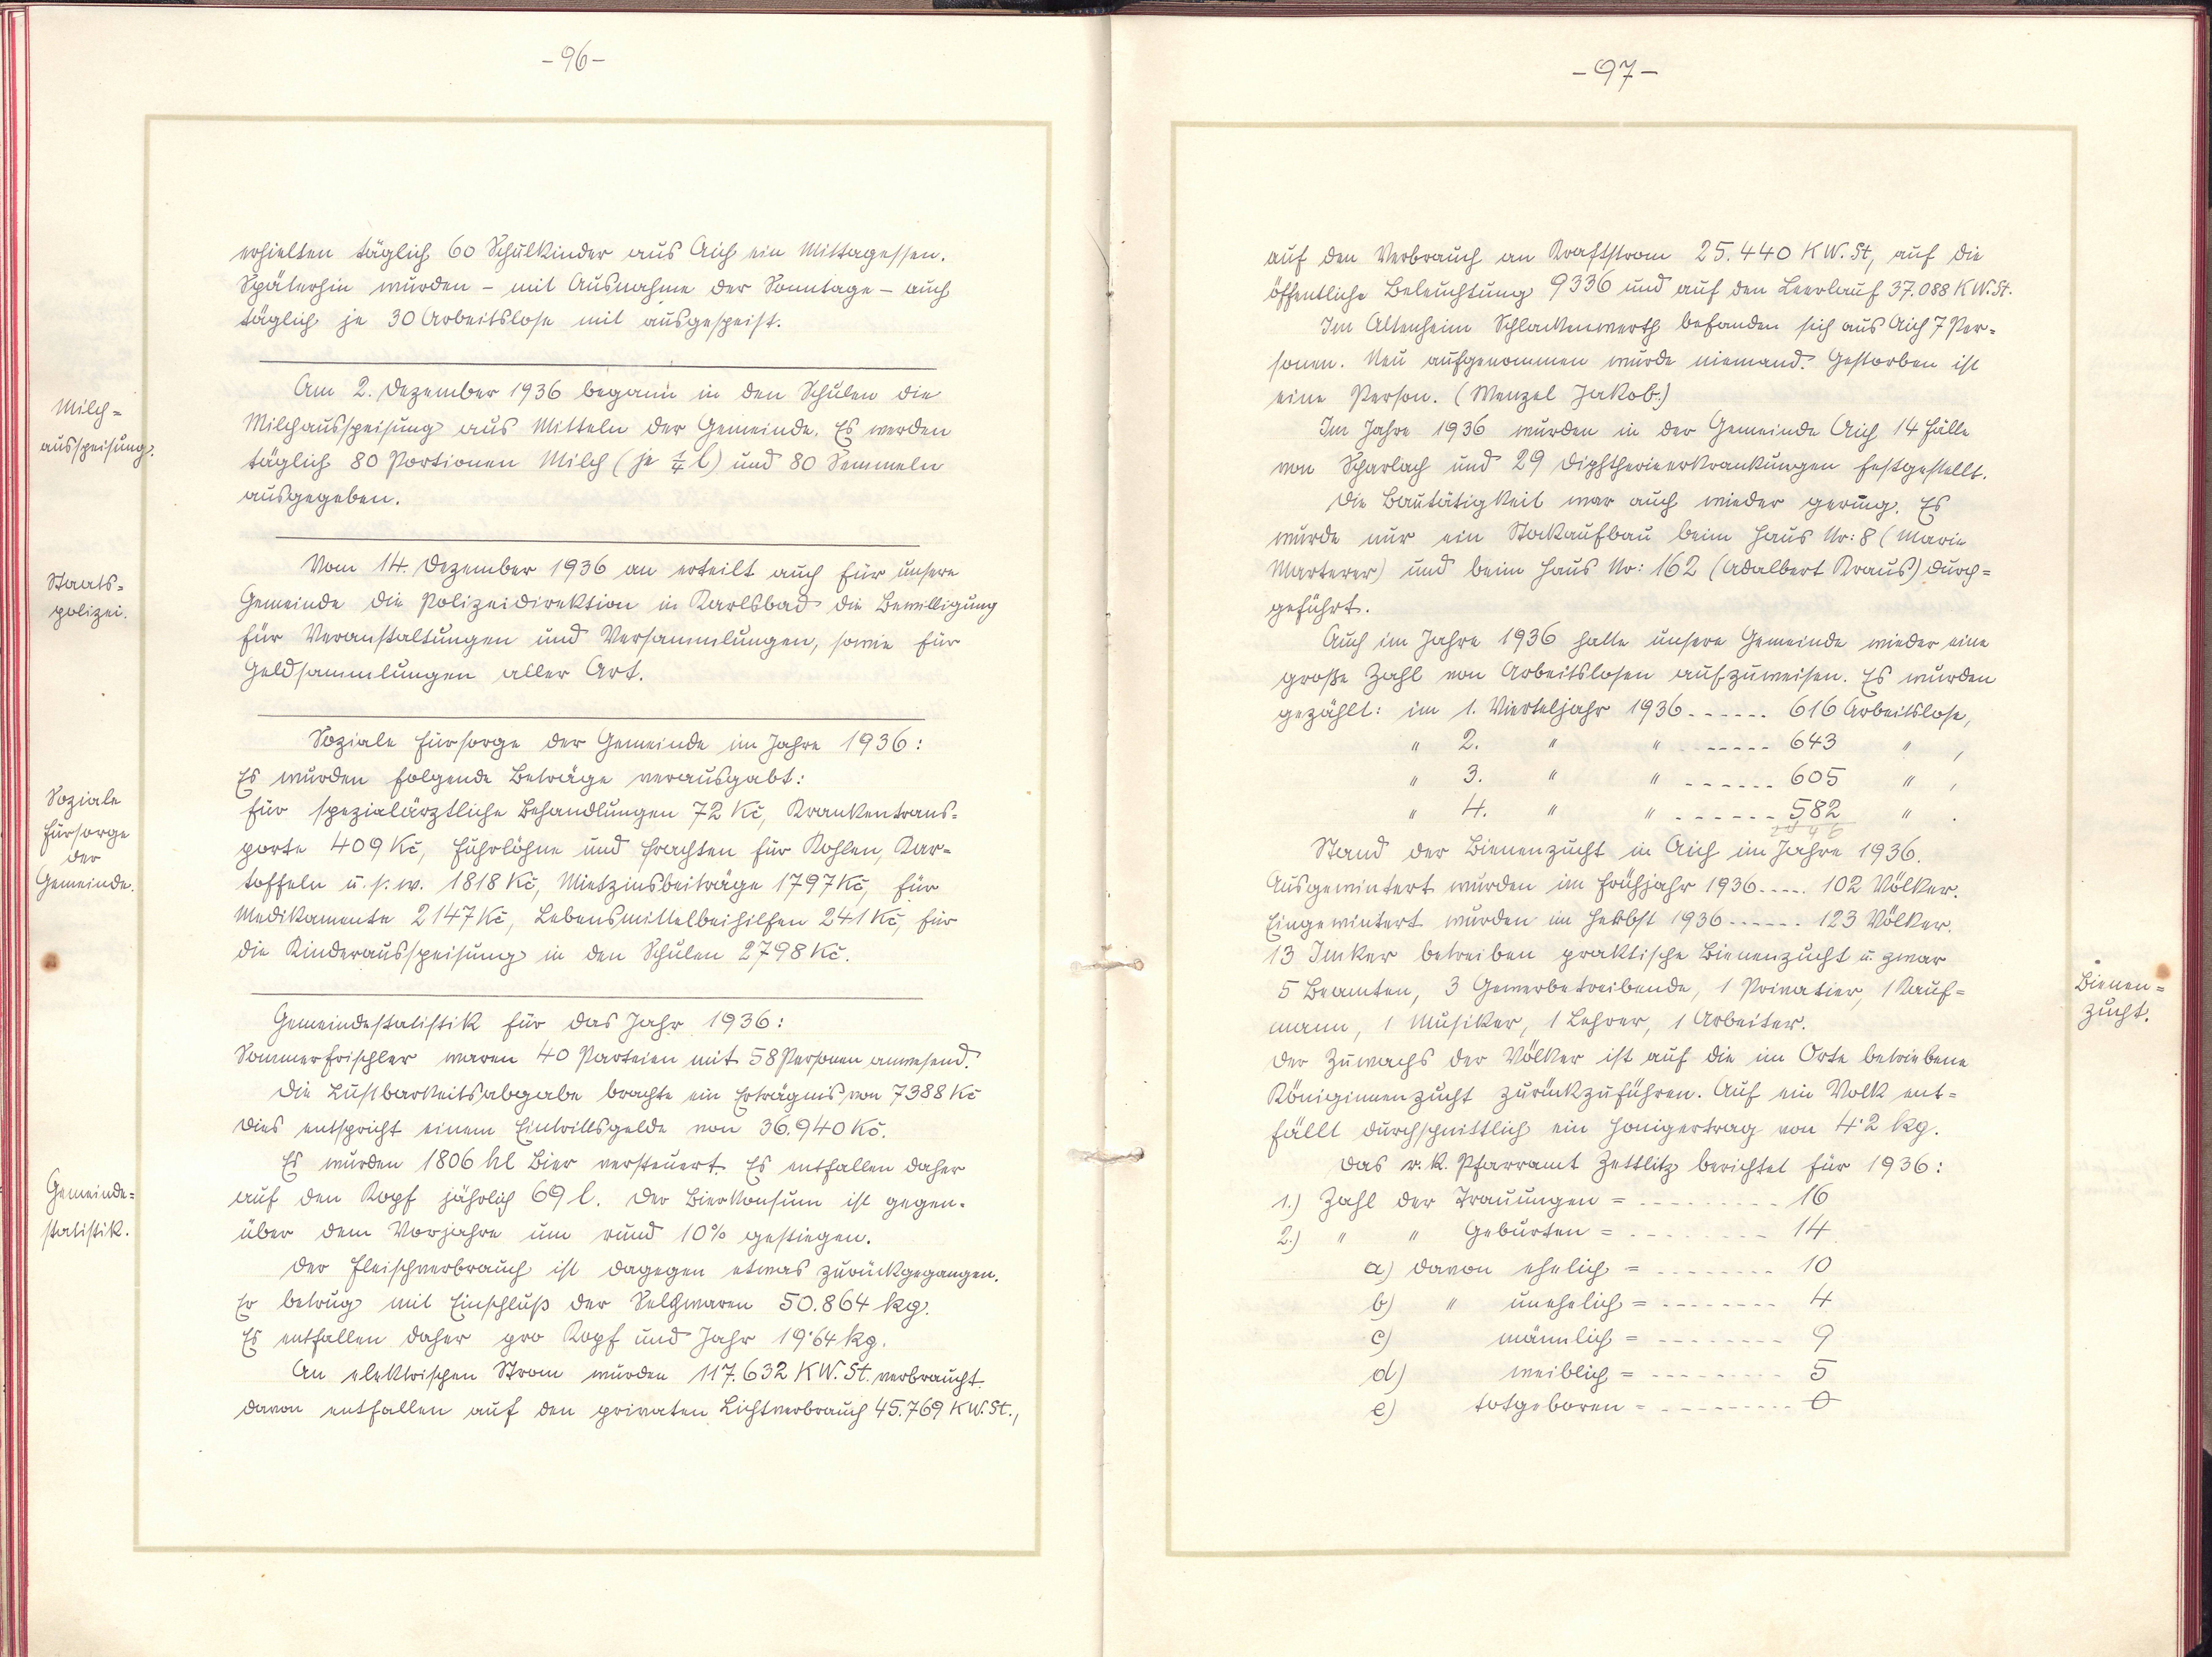 -96-
erhielten täglich 60 Schulkinder aus Aich ein Mittagessen.
Späterhin wurden - mit Ausnahme der Sonntage - auch
täglich je 30 Arbeitslose mit ausgespeist.
Milch=
ausspeisung.
Am 2. Dezember 1936 begann in den Schulen die
Milchausspeisung aus Mitteln der Gemeinde. Es werden
täglich 80 Portionen Milch (je 1/4 l) und 80 Semmeln
ausgegeben.
Staats=
polizei.
Vom 14. Dezember 1936 an erteilt auch für unsere
Gemeinde die Polizeidirektion in Karlsbad die Bewilligung
für Veranstaltungen und Versammlungen, sowie für
Geldsammlungen aller Art.
Soziale
Fürsorge
der
Gemeinde.
Soziale Fürsorge der Gemeinde im Jahre 1936:
Es wurden folgende Beträge verausgabt:
für spezialärztliche Behandlungen 72 Kč, Krankentrans=
porte 409 Kč, Fuhrlöhne und Frachten für Kohlen, Kar=
toffeln u. s. w. 1818 Kč, Mietzinsbeiträge 1797 Kč, für
Medikamente 2147 Kč, Lebensmittelbeihilfen 241 Kč, für
die Kinderausspeisung in den Schulen 2798 Kč.
Gemeinde=
statistik.
Gemeindestatistik für das Jahr 1936:
Sommerfrischler waren 40 Parteien mit 58 Personen anwesend.
Die Lustbarkeitsabgabe brachte ein Erträgnis von 7388 Kč
dies entspricht einem Eintrittsgelde von 36.940 Kč.
Es wurden 1806 hl Bier versteuert. Es entfallen daher
auf den Kopf jährlich 69 l. Der Bierkonsum ist gegen=
über dem Vorjahre um rund 10% gestiegen.
Der Fleischverbrauch ist dagegen etwas zurückgegangen.
Er betrug mit Einschluß der Selchwaren 50.864 kg.
Es entfallen daher pro Kopf und Jahr 19·64 kg.
An elektrischen Strom wurden 117.632 KW. St. verbraucht.
davon entfallen auf den privaten Lichtverbrauch 45.769 KW. St.,
-97-
auf den Verbrauch an Kraftstrom 25.440 KW. St, auf die
öffentliche Beleuchtung 9336 und auf den Leerlauf 37.088 KW. St.
Im Altenheim Schlackenwerth befanden sich aus Aich 7 Per=
sonen. Neu aufgenommen wurde niemand. Gestorben ist
eine Person. (Wenzel Jakob.)
Im Jahre 1936 wurden in der Gemeinde Aich 14 Fälle
von Scharlach und 29 Diphtherieerkrankungen festgestellt.
Die Bautätigkeit war auch wieder gering. Es
wurde nur ein Stockaufbau beim Haus Nr: 8 (Marie
Marterer) und beim Haus Nr: 162 (Adalbert Kraus) durch=
geführt.
Auch im Jahre 1936 hatte unsere Gemeinde wieder eine
große Zahl von Arbeitslosen aufzuweisen. Es wurden
gezählt: im 1. Vierteljahr 1936 ------ 616 Arbeitslose,
" 2. " " ------ 643 " ,
" 3. " " ------ 605 " ,
" 4. " " ------ 582 " .
2446
Stand der Bienenzucht in Aich im Jahre 1936.
Ausgewintert wurden im Frühjahr 1936 ---- 102 Völker.
Eingewintert wurden im Herbst 1936 ------ 123 Völker.
13 Imker betreiben praktische Bienenzucht u. zwar
5 Beamten, 3 Gewerbetreibende, 1 Privatier, 1 Kauf=
mann, 1 Musiker, 1 Lehrer, 1 Arbeiter.
Bienen=
zucht.
Der Zuwachs der Völker ist auf die im Orte betriebene
Königinnenzucht zurückzuführen. Auf ein Volk ent=
fällt durchschnittlich ein Honigertrag von 4·2 kg.
Das r. k. Pfarramt Zettlitz berichtet für 1936:
1.) Zahl der Trauungen = --------- 16
2.) " " Geburten = --------- 14
a) davon ehelich = -------- 10
b) " unehelich = -------- 4
c) männlich = -------- 9
d) weiblich = --------- 5
e) totgeboren = --------- 0